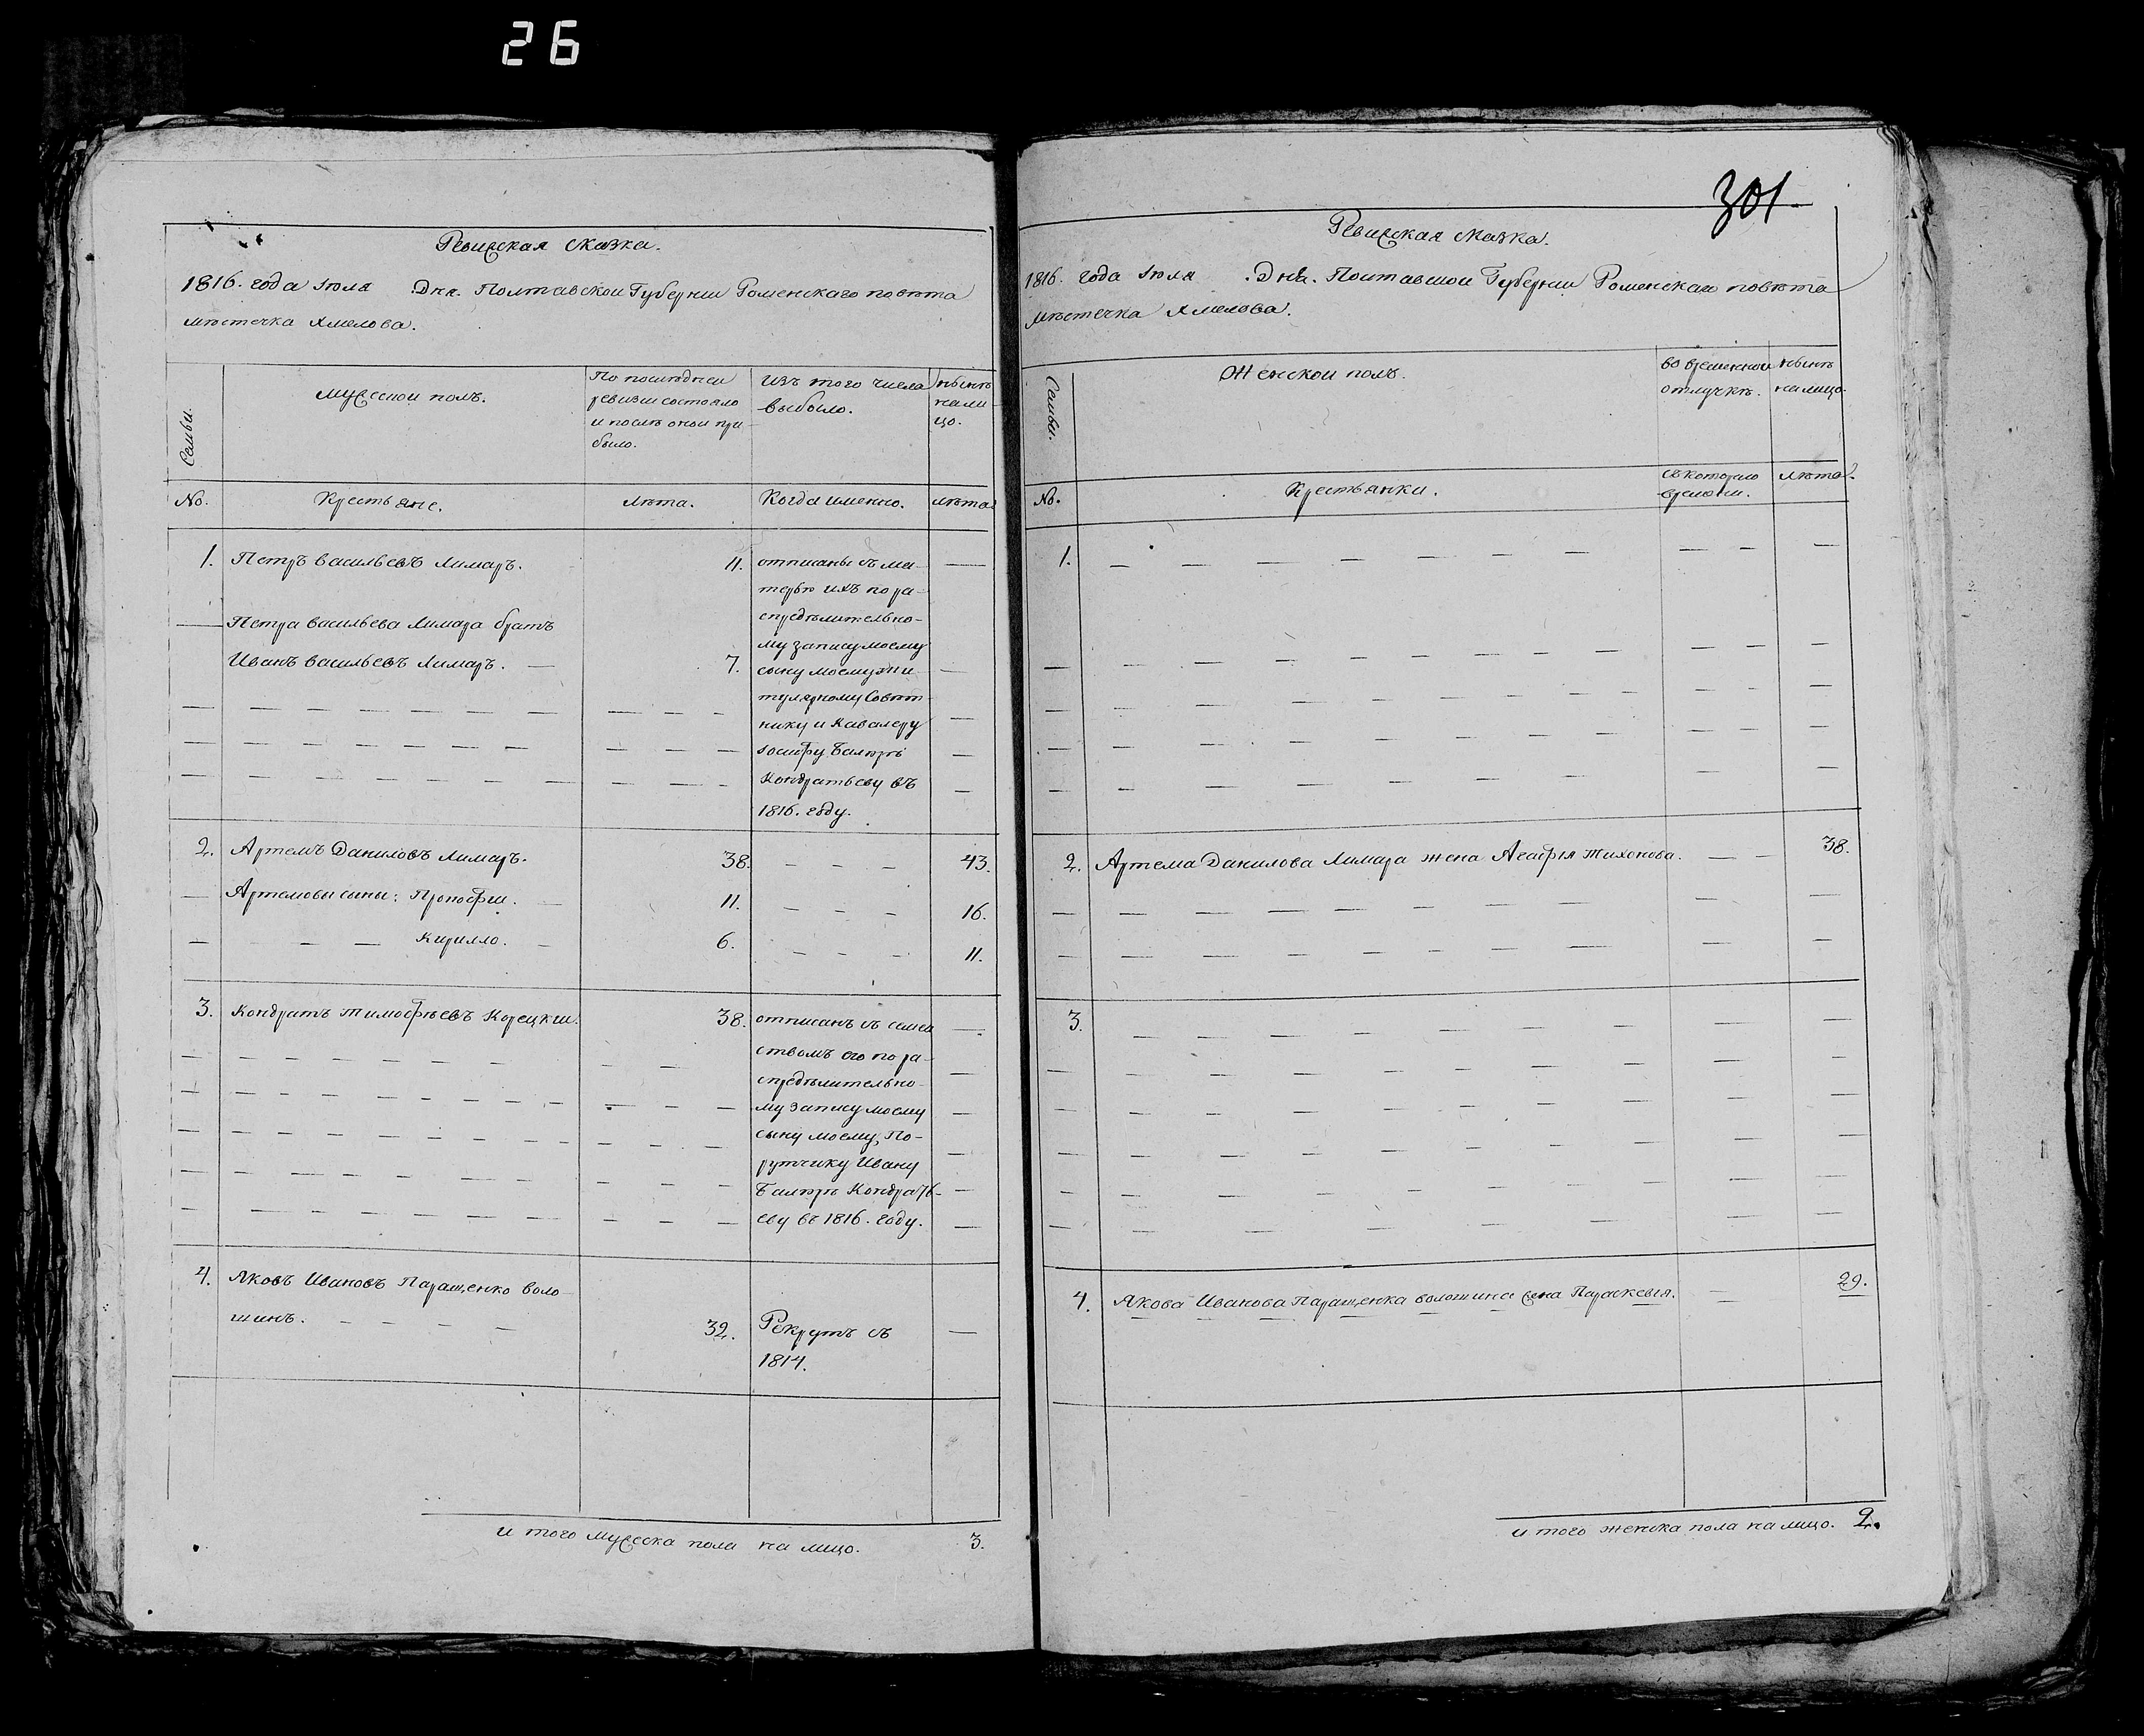 26
Ревизская сказка.
1816. года Iюля Дня. Полтавской Губернии Роменскаго повѣта
мѣстечка Хмелова.
Семьи.
Мужеской полъ.
По последней
ревизии состояло
и послѣ оной при
было.
Изъ того числа
выбыло.
Нынѣ
нали
цо.
No.
Крестьяне.
Лѣта.
Когда именно.
Лѣта.
1. Петръ Васильевъ Лимаръ. 11. отписаны съ ма-
терью ихъ по ра-
спредѣлительно-
Петра Васильева Лимара братъ
му запису моему
Иванъ Васильевъ Лимаръ. 7. сыну моему ти
тулярному Совѣт-
нику и Кавалеру
Iосифу
Кондратьеву въ
1816. году.
2. Артемъ Даниловъ Лимаръ. 38. 43.
Артемовы сыны: Прокофии. 11. 16.
Кирилло. 6. 11.
3. Кондратъ Тимофѣевъ Корецкии. 38. отписанъ съ семеи
ствомъ его по ра-
спредѣлительно-
му запису моему
сыну моему, По-
рутчику Ивану
Кондрать-
еву въ 1816. году.
4. Яковъ Ивановъ Паращенко воло
шинъ. 32. Рекрутъ съ
1814.
и того мужеска пола на лицо. 3.
301.
Ревизская сказка.
1816. года Iюля Дня. Полтавской Губернии Роменскаго повѣта
мѣстечка Хмелова.
Семьи.
Женской полъ.
во временной
отлучкѣ.
Нынѣ
на лицо.
No.
Крестьянки.
съ которого
времени.
Лѣта.
1.
2. Артема Данилова Лимара жена Агафия Тихонова. 38.
3.
4. Якова Иванова Паращенка волошина жена Параскевия. 29.
и того женска пола на лицо. 2.